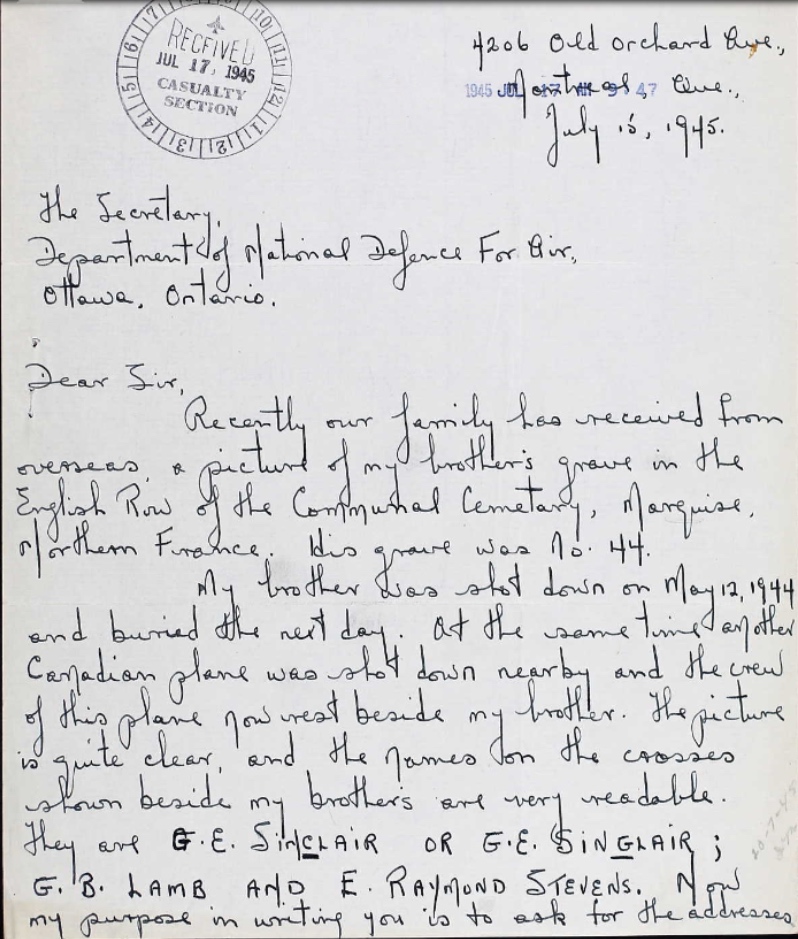 RECEIVED
JUL 17, 1945
CASUALTY
SECTION
4206 Old Orchard Ave.,
1945 JUL 17 AM 9 47
Montreal, Que.,
July 15, 1945.
The Secretary,
Department of National Defence For Air,
Ottawa, Ontario.
Dear Sir,
Recently our family has received from
overseas, a picture of my brother's grave in the
English Row of the Communal Cemetary, Marquise,
Northern France. His grave was No. 44.
My brother was shot down on May 12, 1944
and buried the next day. At the same time another
Canadian plane was shot down nearby and the crew
of this plane now rest beside my brother. The picture
is quite clear, and the names on the crosses
shown beside my brother's are very readable.
They are G.E. SINCLAIR OR G.E. SINGLAIR;
G. B. LAMB AND E. RAYMOND STEVENS. Now
my purpose in writing you is to ask for the addresses